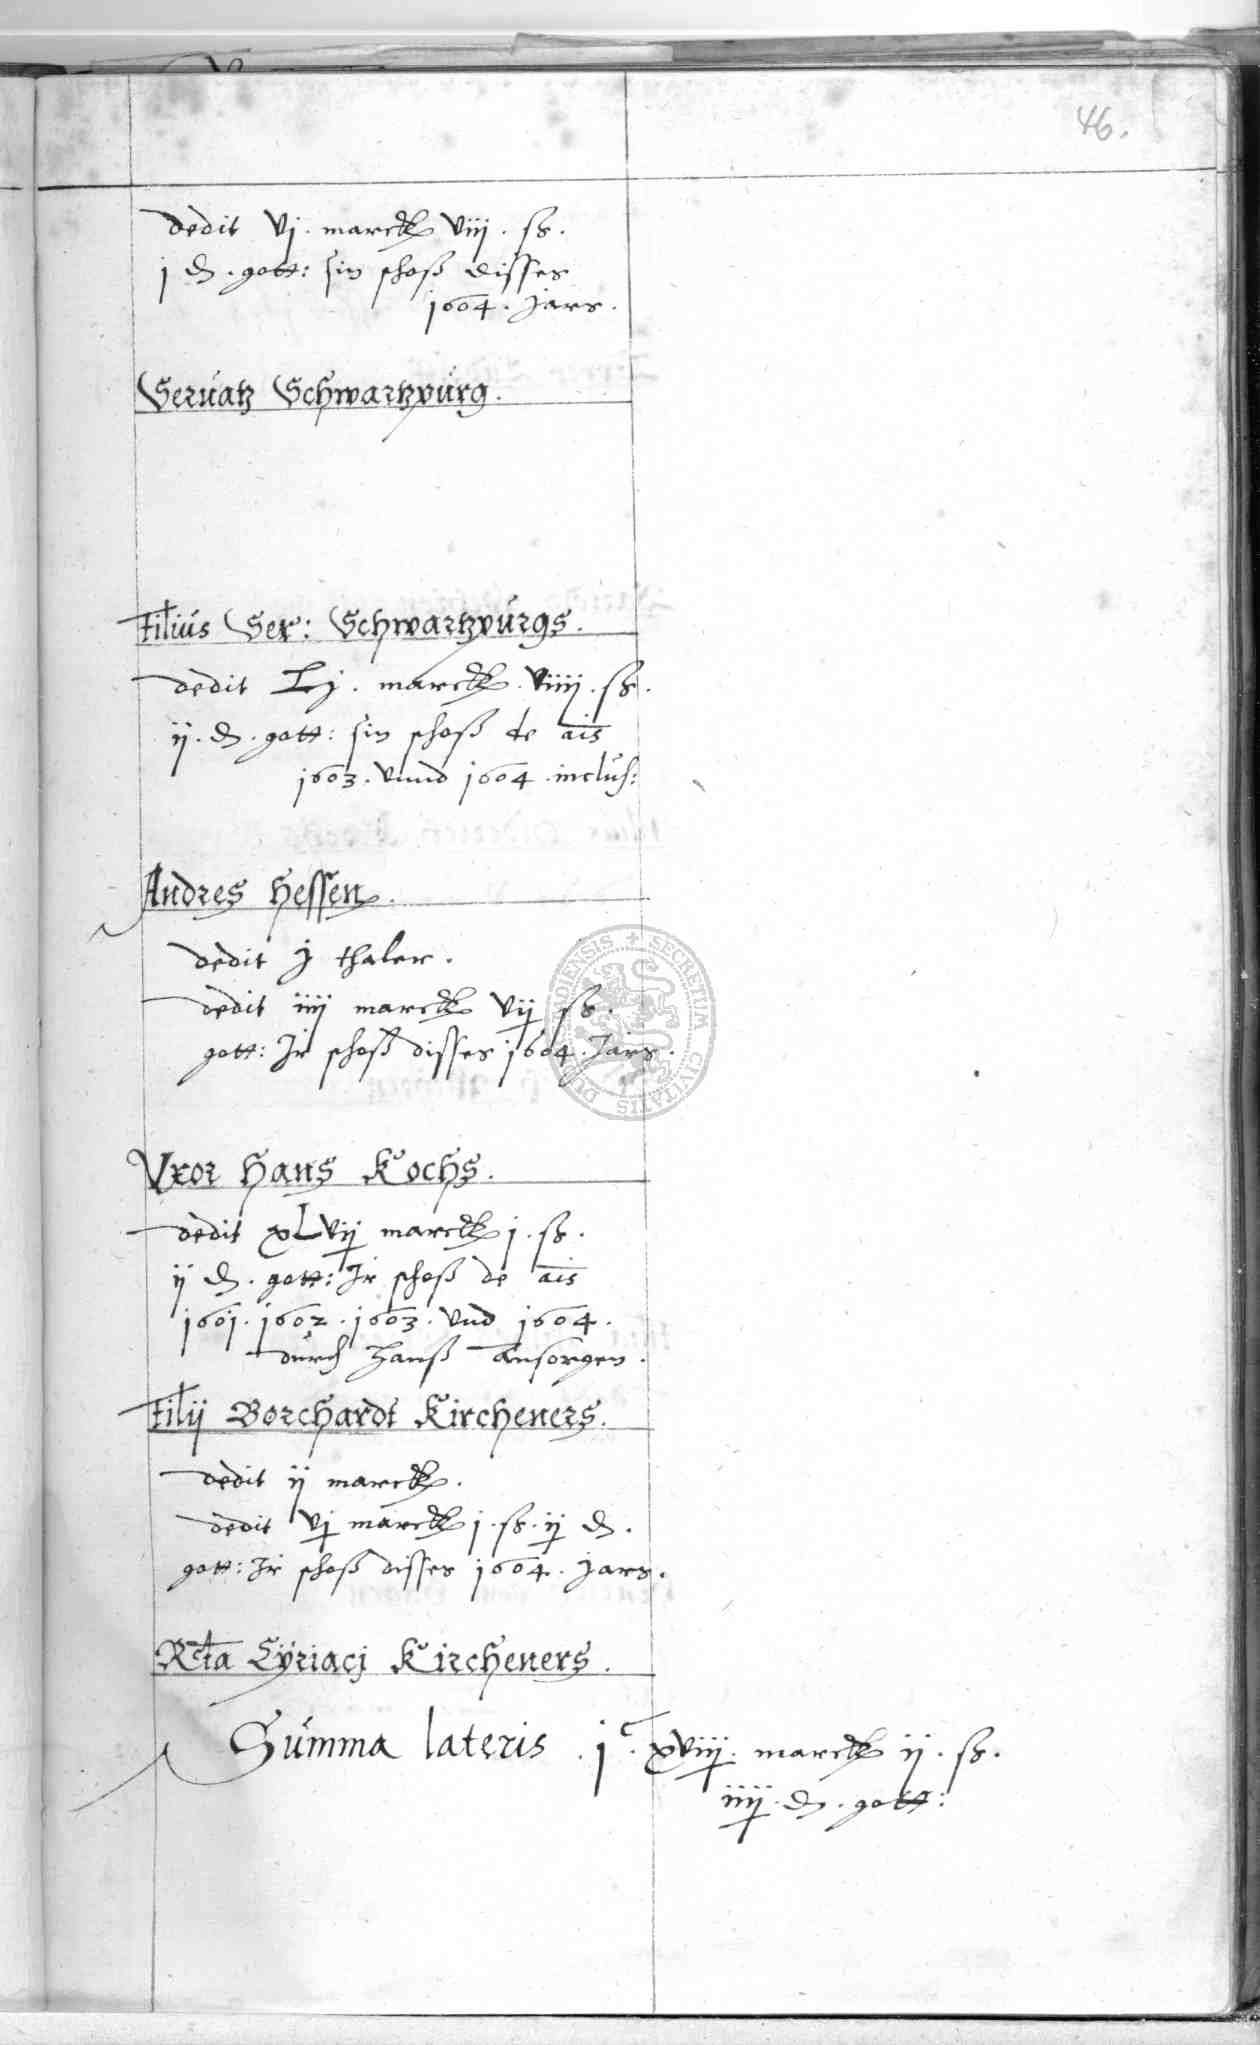 46.
dedit vj. marck viij. ß.
j d. gott: sin schoß disses
1604. Jars.
Seruatz Schwartzburg.
Filius Ser: Schwartzburgs.
dedit Lj. marck. viiij. ß.
ij. d. gott: sin schoß de ais
1603. vnnd 1604. inclus:
Andres Hessen.
dedit j thaler.
dedit iiij marck vij ß.
gott: Ir schoß disses 1604. Jars.
SECRETUM CIVITATIS
Vxor Hans Kochs.
dedit xLvij marck j. ß.
ij d. gott: Ir schoß de ais
1601. 1602. 1603. vnd 1604.
durch Hanß Ansorgen.
Filij Borchardt Kircheners.
dedit ij marck.
dedit vj marck j. ß. ij d.
gott: Ir schoß disses 1604. Jars.
Rcta Cyriacj Kircheners.
Summa lateris. jc. xviij. marck ij. ß.
iiij. d. gott: